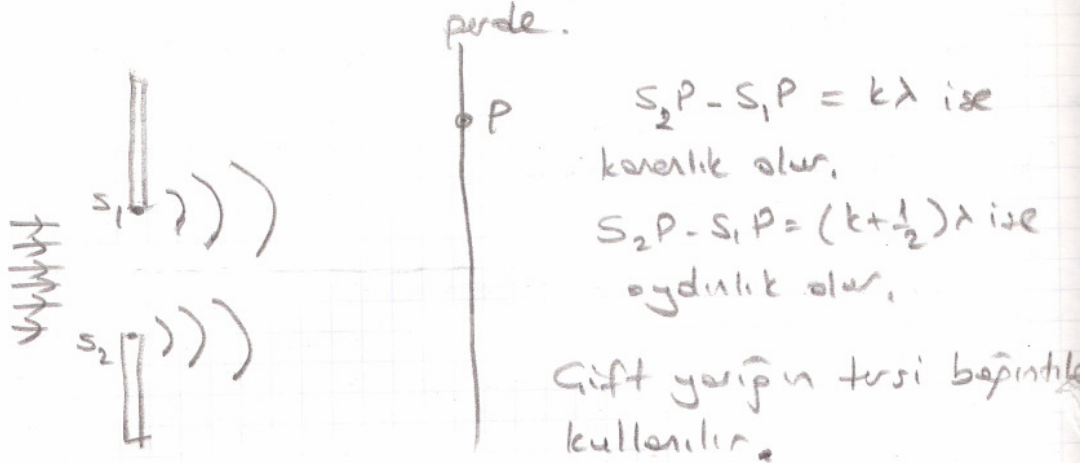 perde.
P
S₂P - S₁P = kλ ise
karanlık olur.
S₁
S₂P - S₁P = (k+½)λ ise
aydınlık olur.
S₂
Çift yarığın tersi bağıntıla
kullanılır.